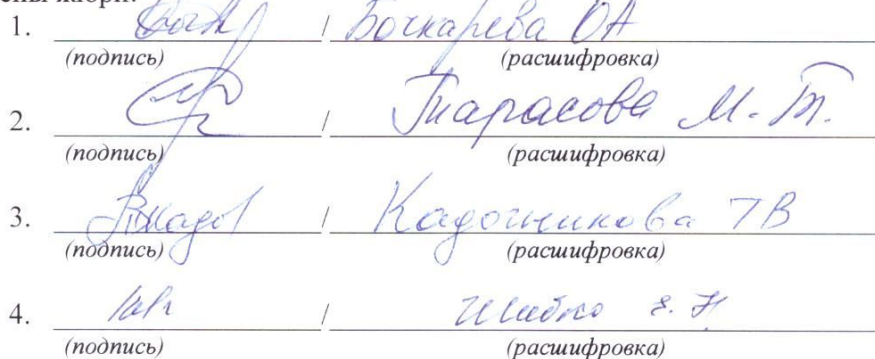 жюри:
1. / Бочкарева ОА
(подпись) (расшифровка)
2. / Тарасова М.Т.
(подпись) (расшифровка)
3. / Кадочникова ТВ
(подпись) (расшифровка)
4. / Шибко Е.Н
(подпись) (расшифровка)